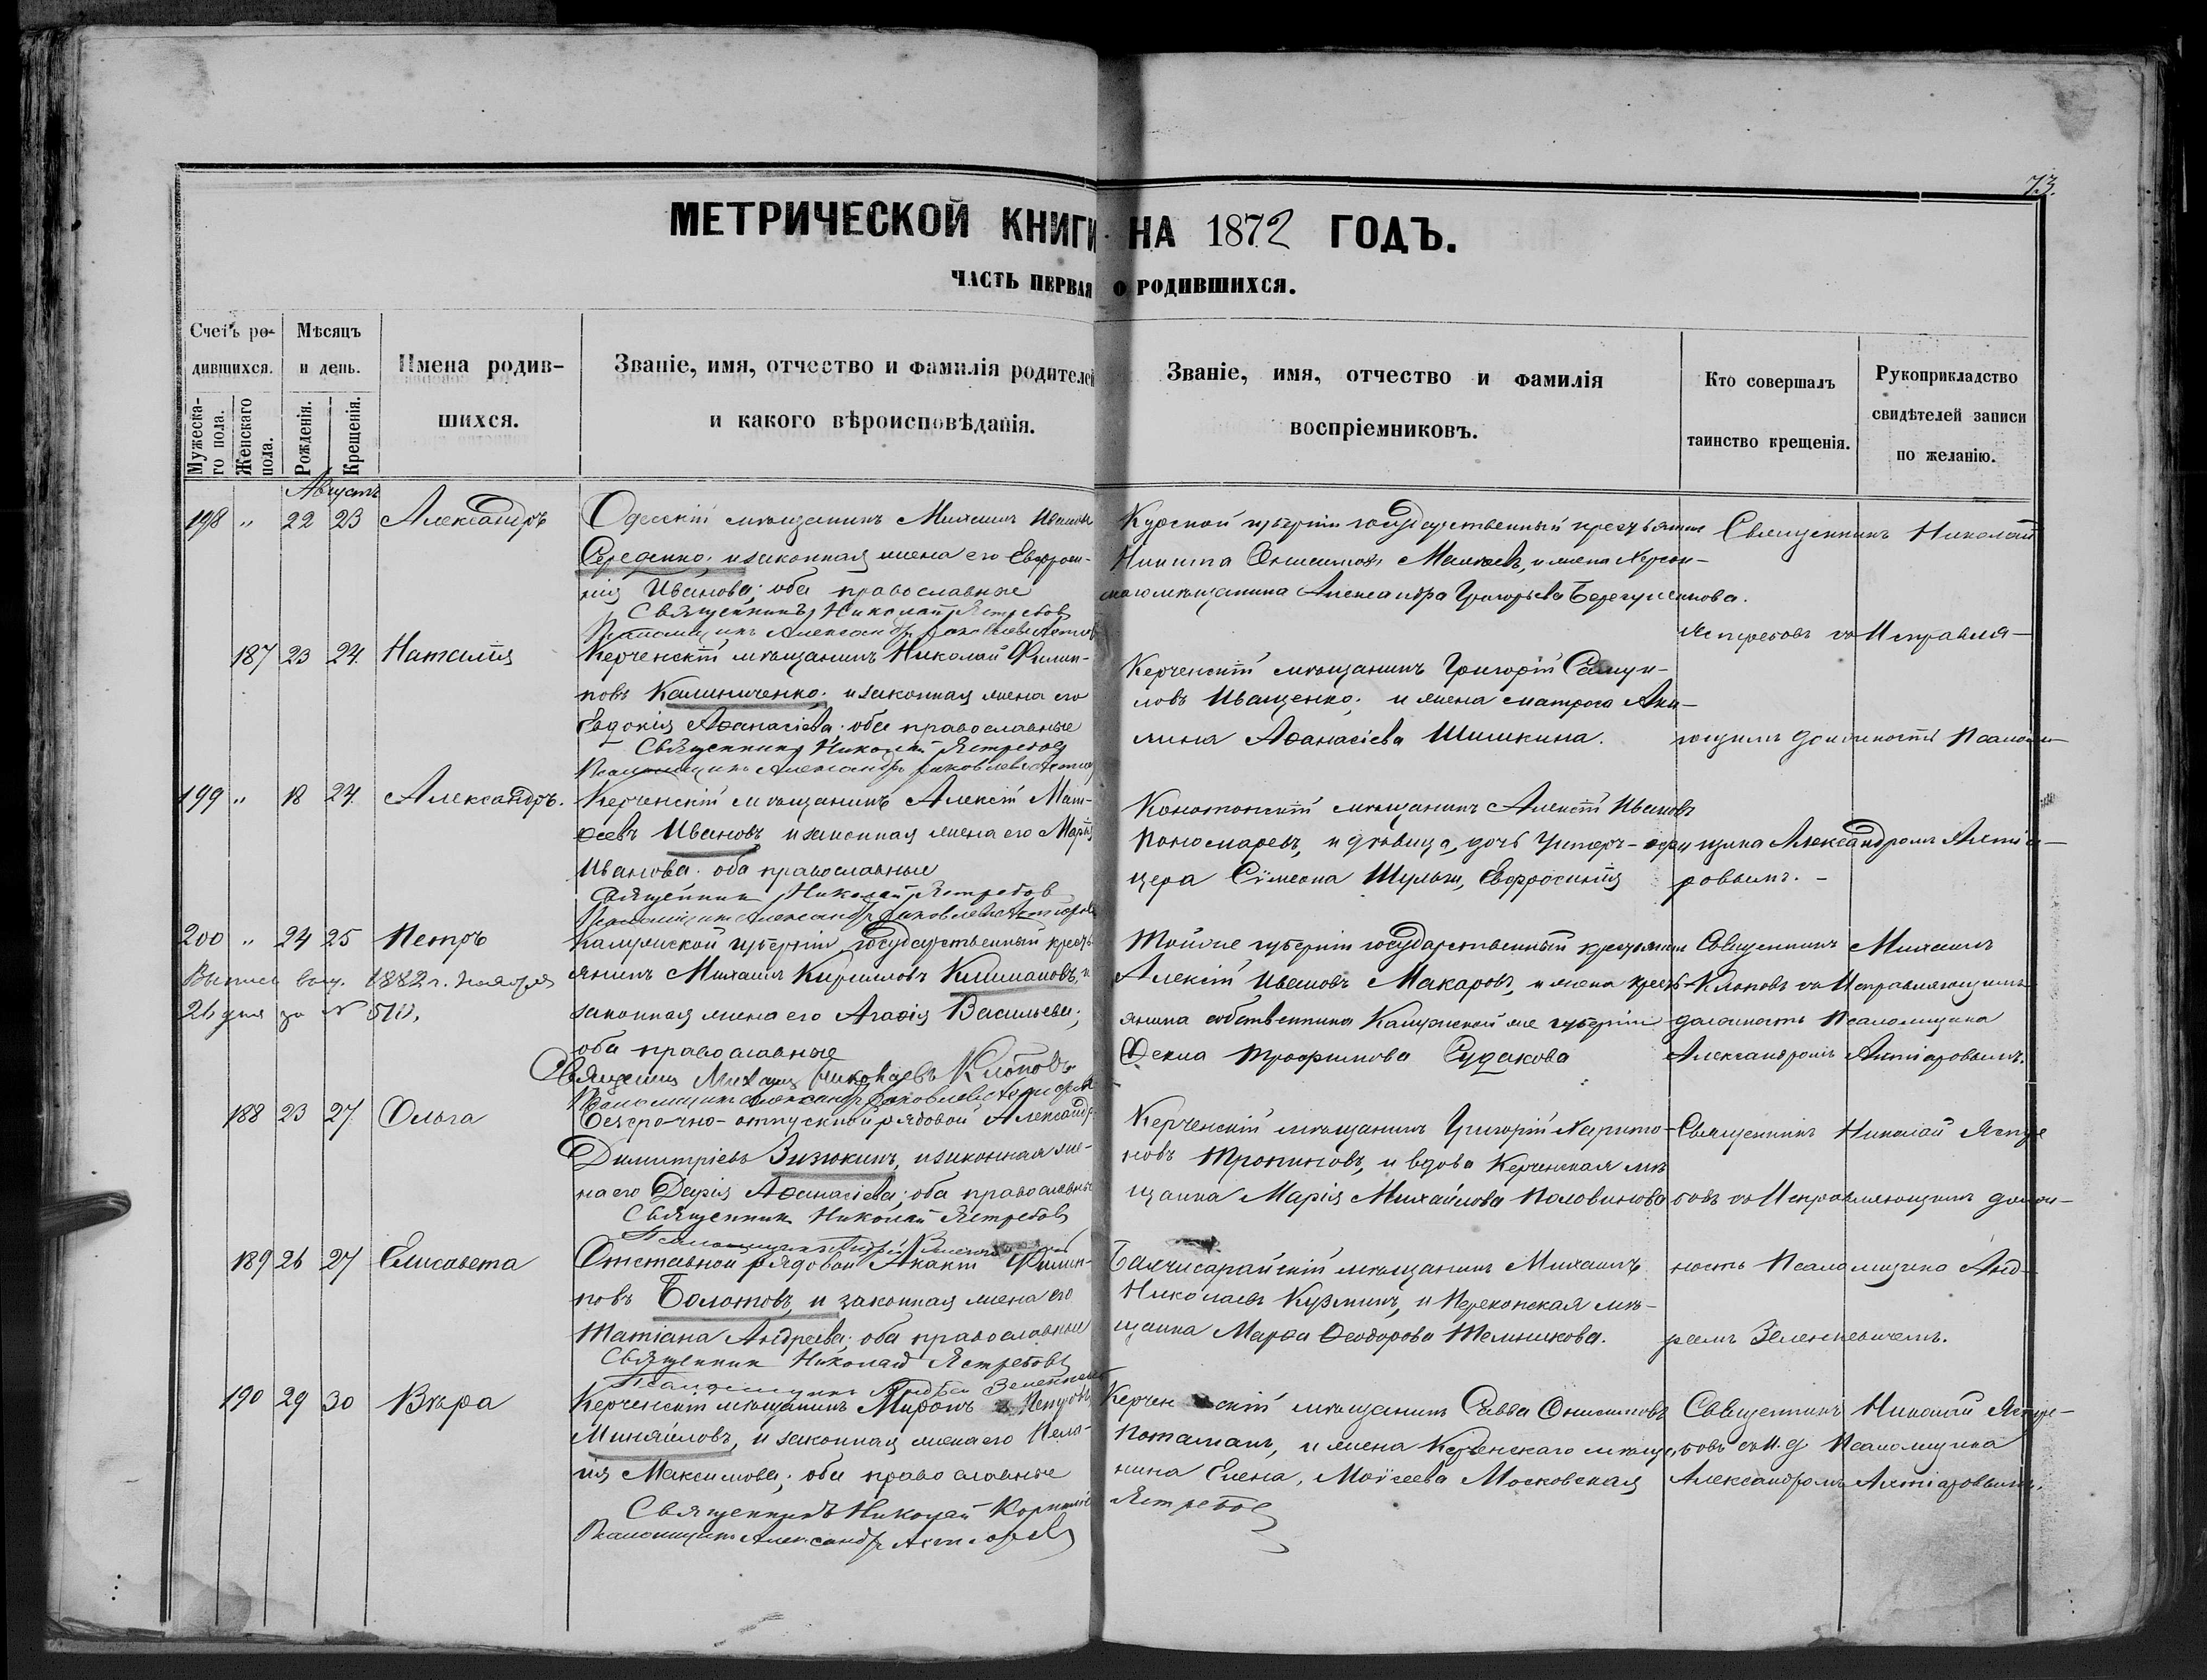 73.
МЕТРИЧЕСКОЙ КНИГИ НА 1872 ГОДЪ.
ЧАСТЬ ПЕРВАЯ О РОДИВШИХСЯ.
Счетъ ро-
дившихся.
Мужеска-
го пола.
Женскаго
пола.
Мѣсяцъ
и день.
Рожденія.
Крещенія.
Имена родив-
шихся.
Званіе, имя, отчество и фамилія родителей
и какого вѣроисповѣданія.
Званіе, имя, отчество и фамилія
воспріемниковъ.
Кто совершалъ
таинство крещенія.
Рукоприкладство
свидѣтелей записи
по желанію.
Августъ
198 " 22 23 Александръ
Одесскій мѣщанинъ Михаилъ Ивановъ
Середенко, и законная жена его Евфроси-
нія Иванова; оба православные
Священникъ Николай Ястребовъ
Псаломщикъ Александръ Яковлевъ
Курской губерніи государственный крестьянинъ
Никита Онисимовъ и жена Херсон-
скаго мѣщанина Александра Григорьева
Священникъ Николай
Ястребовъ съ Исправля-
187 23 24 Наталія
Керченскій мѣщанинъ Николай Филип-
повъ Калиниченко, и законная жена его
Евдокія Аѳанасіева; оба православные
Священникъ Николай Ястребовъ
Псаломщикъ Александръ Яковлевъ
Керченскій мѣщанинъ Григорій Самуи-
ловъ Иващенко; и жена матроса Аки-
лина Аѳанасіева Шишкина.
ющимъ должность Псалом-
199 " 18 24 Александръ.
Керченскій мѣщанинъ Алексій Мат-
ѳеевъ Ивановъ, и законная жена его Марія
Иванова; оба православные
Священникъ Николай Ястребовъ
Псаломщикъ Александръ Яковлевъ
Конотопскій мѣщанинъ Алексій Ивановъ
Пономаревъ, и дѣвица, дочь Унтеръ-офи
цера Сѵмеона Шульги, Евфросинія
щика Александромъ Ахтіа-
ровымъ. -
200 " 24 25 Петръ
Выпись выд. 1882 г. Ноября
26 дня за № 510.
Калужской губерніи государственный кресть-
янинъ Михаилъ Кирилловъ Климановъ, и
законная жена его Агаѳія Васильева;
оба православные
Священникъ Михаилъ Николаевъ Клоповъ
Псаломщикъ Александръ Яковлевъ
Тойже губерніи государственный крестьянинъ
Алексій Ивановъ Макаровъ, и жена кресть-
янина собственника Калужской же губерніи
Ѳекла Трофимова Судакова
Священникъ Михаилъ
Клоповъ съ Исправляющимъ
должность Псаломщика
Александромъ Ахтіаровымъ.
188 23 27 Ольга
Безсрочно-отпускной рядовой Александръ
Димитріевъ Зизюкинъ, и законная же-
на его Дарія Аѳанасіева; оба православные
Священникъ Николай Ястребовъ
Керченскій мѣщанинъ Григорій Харито-
новъ Тропиновъ, и вдова Керченская мѣ
щанка Марія Михайлова Половинкова
Священникъ Николай Ястре
бовъ съ Исправляющимъ долж-
189 26 27 Елисавета
Отставной рядовой Акакій Филип-
повъ Болотовъ, и законная жена его
Татіана Андреева; оба православные
Священникъ Николай Ястребовъ
Бахчисарайскій мѣщанинъ Михаилъ
Николаевъ Кузминъ, и Перекопская мѣ-
щанка Марѳа Ѳеодорова Мельникова.
ность Псаломщика Анд-
реемъ Зеленкевичемъ.
190 29 30 Вѣра
Керченскій мѣщанинъ Миронъ Петровъ
Михайловъ, и законная жена его Пела-
гія Максимова; оба православные
Священникъ Николай Корнилі
Псаломщикъ Александръ
Керченскій мѣщанинъ Савва Онисимовъ
Потаманъ, и жена Керченскаго мѣща
нина Елена Моѵсеева Московская
Ястребовъ
Священникъ Николай Ястре-
бовъ съ И. д Псаломщика
Александромъ Ахтіаровымъ.